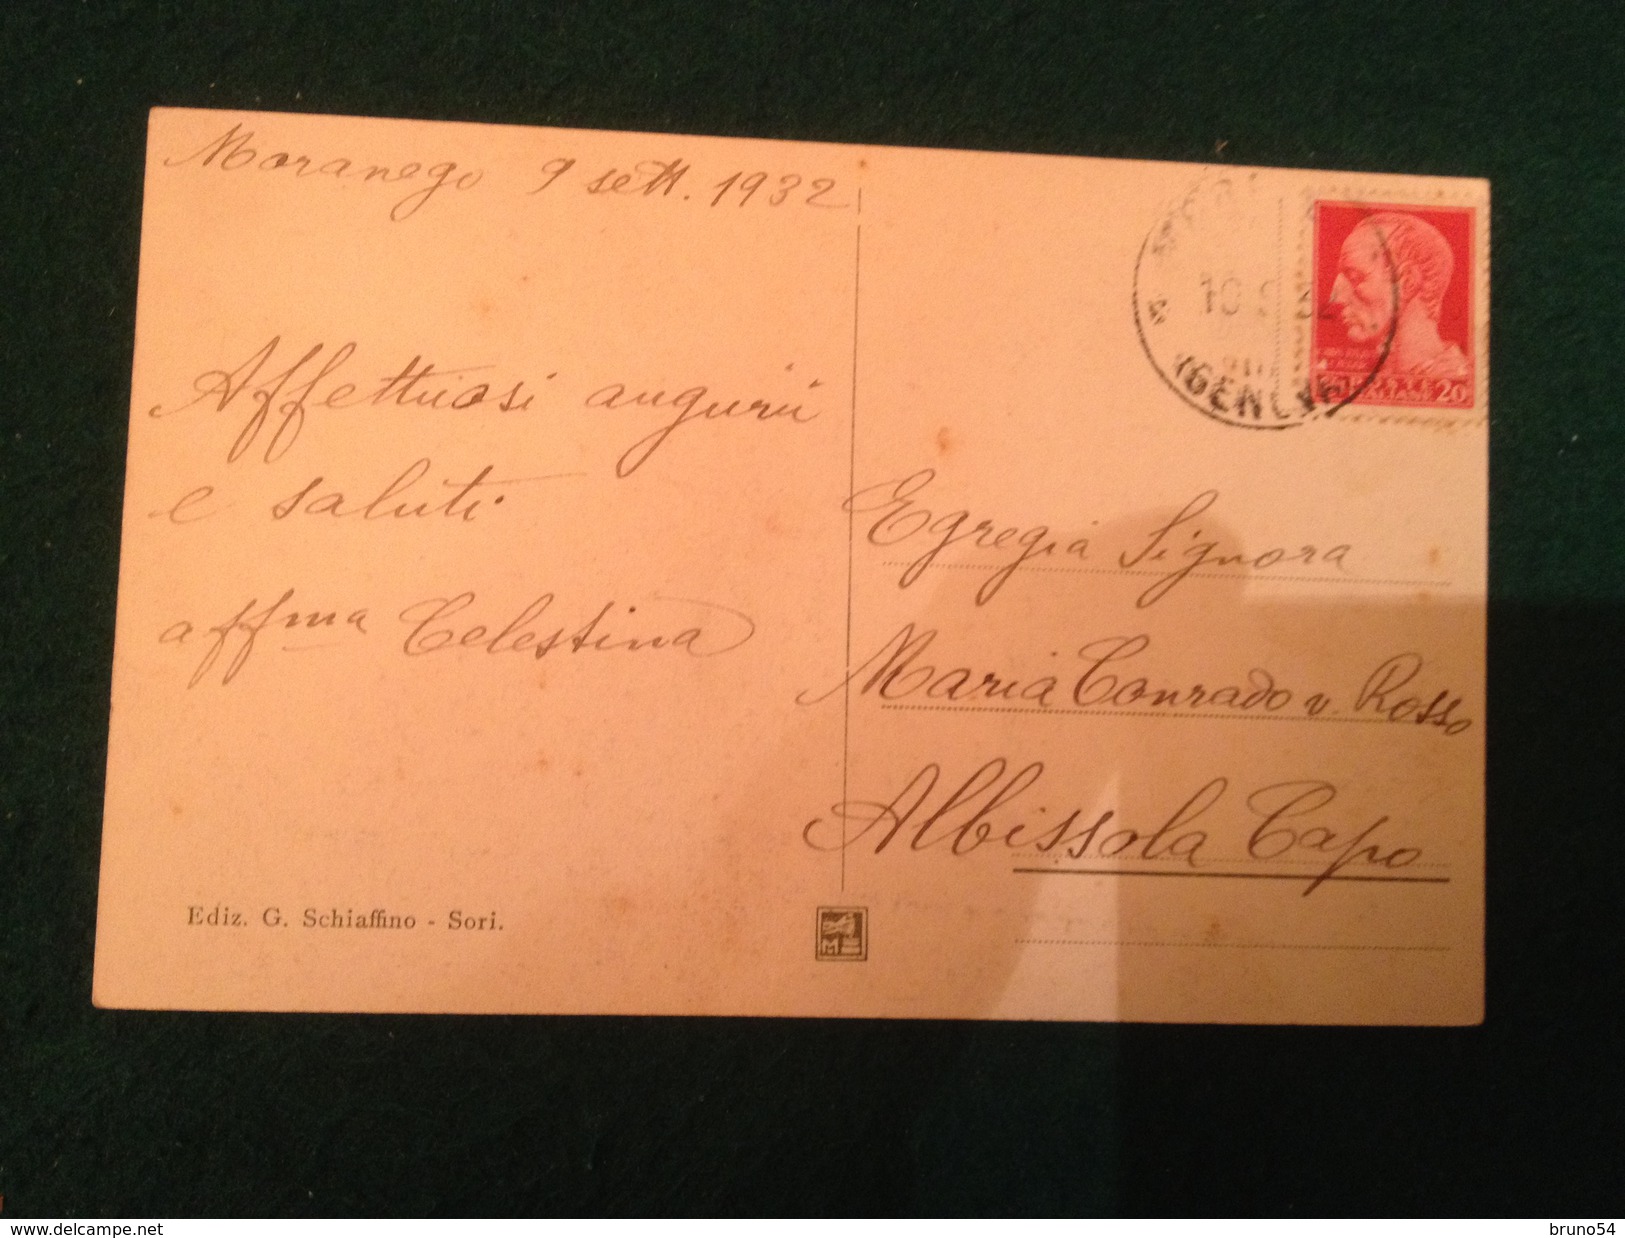 Moranego 9 sett. 1932
Affettuosi augurii
e saluti
affma Celestina
Ediz. G. Schiaffino - Sori.
10 9 32
(GENOVA)
POSTE
ITALIANE 20
Egregia Signora
Maria Conrado v. Rosso
Albissola Capo
M
www.delcampe.net
bruno54